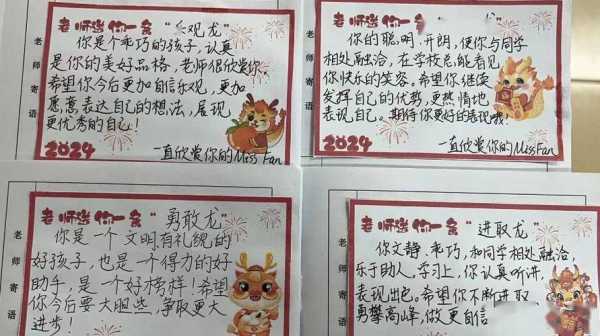 老师送你一条“乐观龙”
你是个乖巧的孩子,认真
是你的美好品格,老师很欣赏你。
希望你今后更加自信乐观,更加
愿意表达自己的想法,展现
更优秀的自己!
2024
一直欣赏你的Miss Fan
老师寄语
老师送你一条“ 龙”
你的聪明、开朗,使你与同学
相处融洽,在学校总能看见
你快乐的笑容。希望你继续
发挥自己的优势,更热情地
表现自己。期待你更好的表现哦!
2024
一直欣赏你的Miss Fan
老师寄语
老师送你一条“勇敢龙”
你是一个文明有礼貌的
好孩子,也是一个得力的好
助手,是一个好榜样!希望
你今后要大胆些,争取更大
进步!
老师寄语
老师送你一条“进取龙”
你文静、乖巧,和同学相处融洽,
乐于助人。学习上,你认真听讲,
表现出色。希望你不断进取
勇攀高峰,做更自信
老师寄语